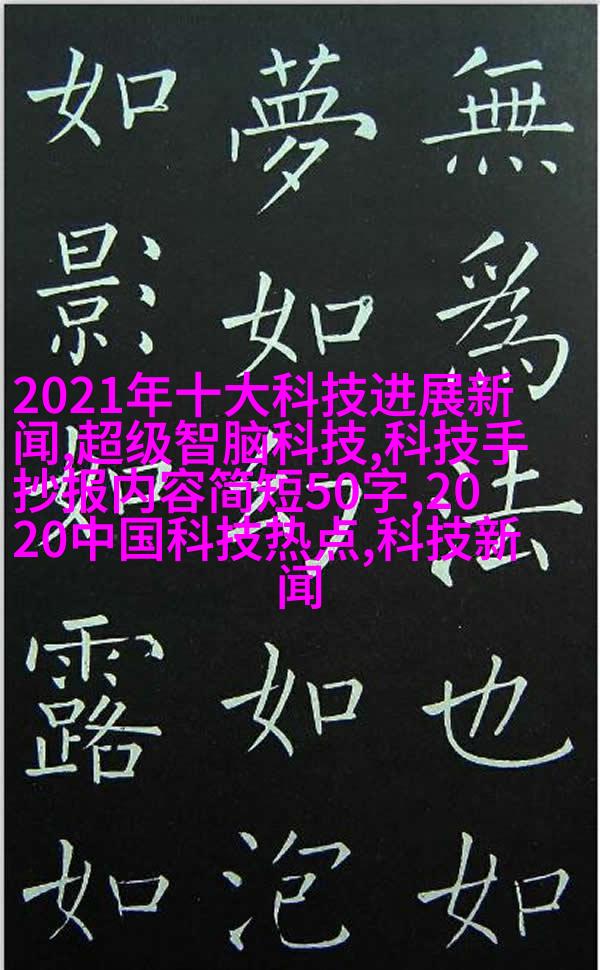 無爲法也如
夢如幻如泡
如影如露如
2021年十大科技进展新
闻,超级智脑科技,科技手
抄报内容简短50字,20
20中国科技热点,科技新
闻